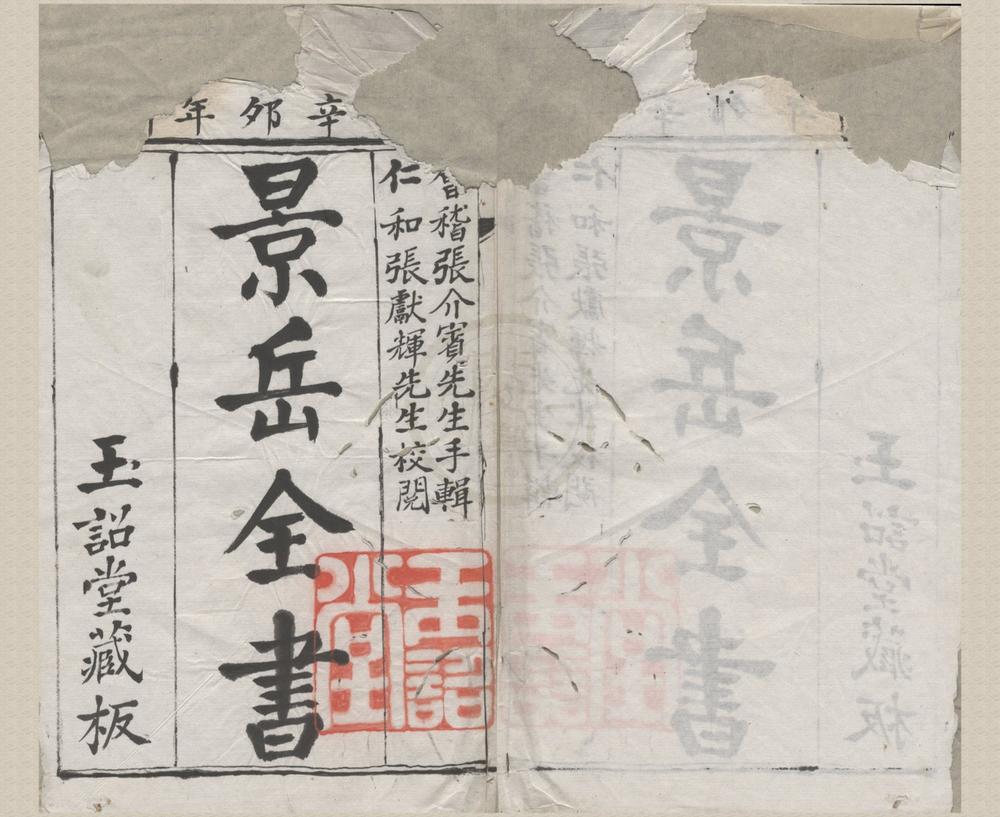 辛夘年
會稽張介賓先生手輯
仁和張獻輝先生校閲
景岳全書
玉詔堂藏板
玉詔堂